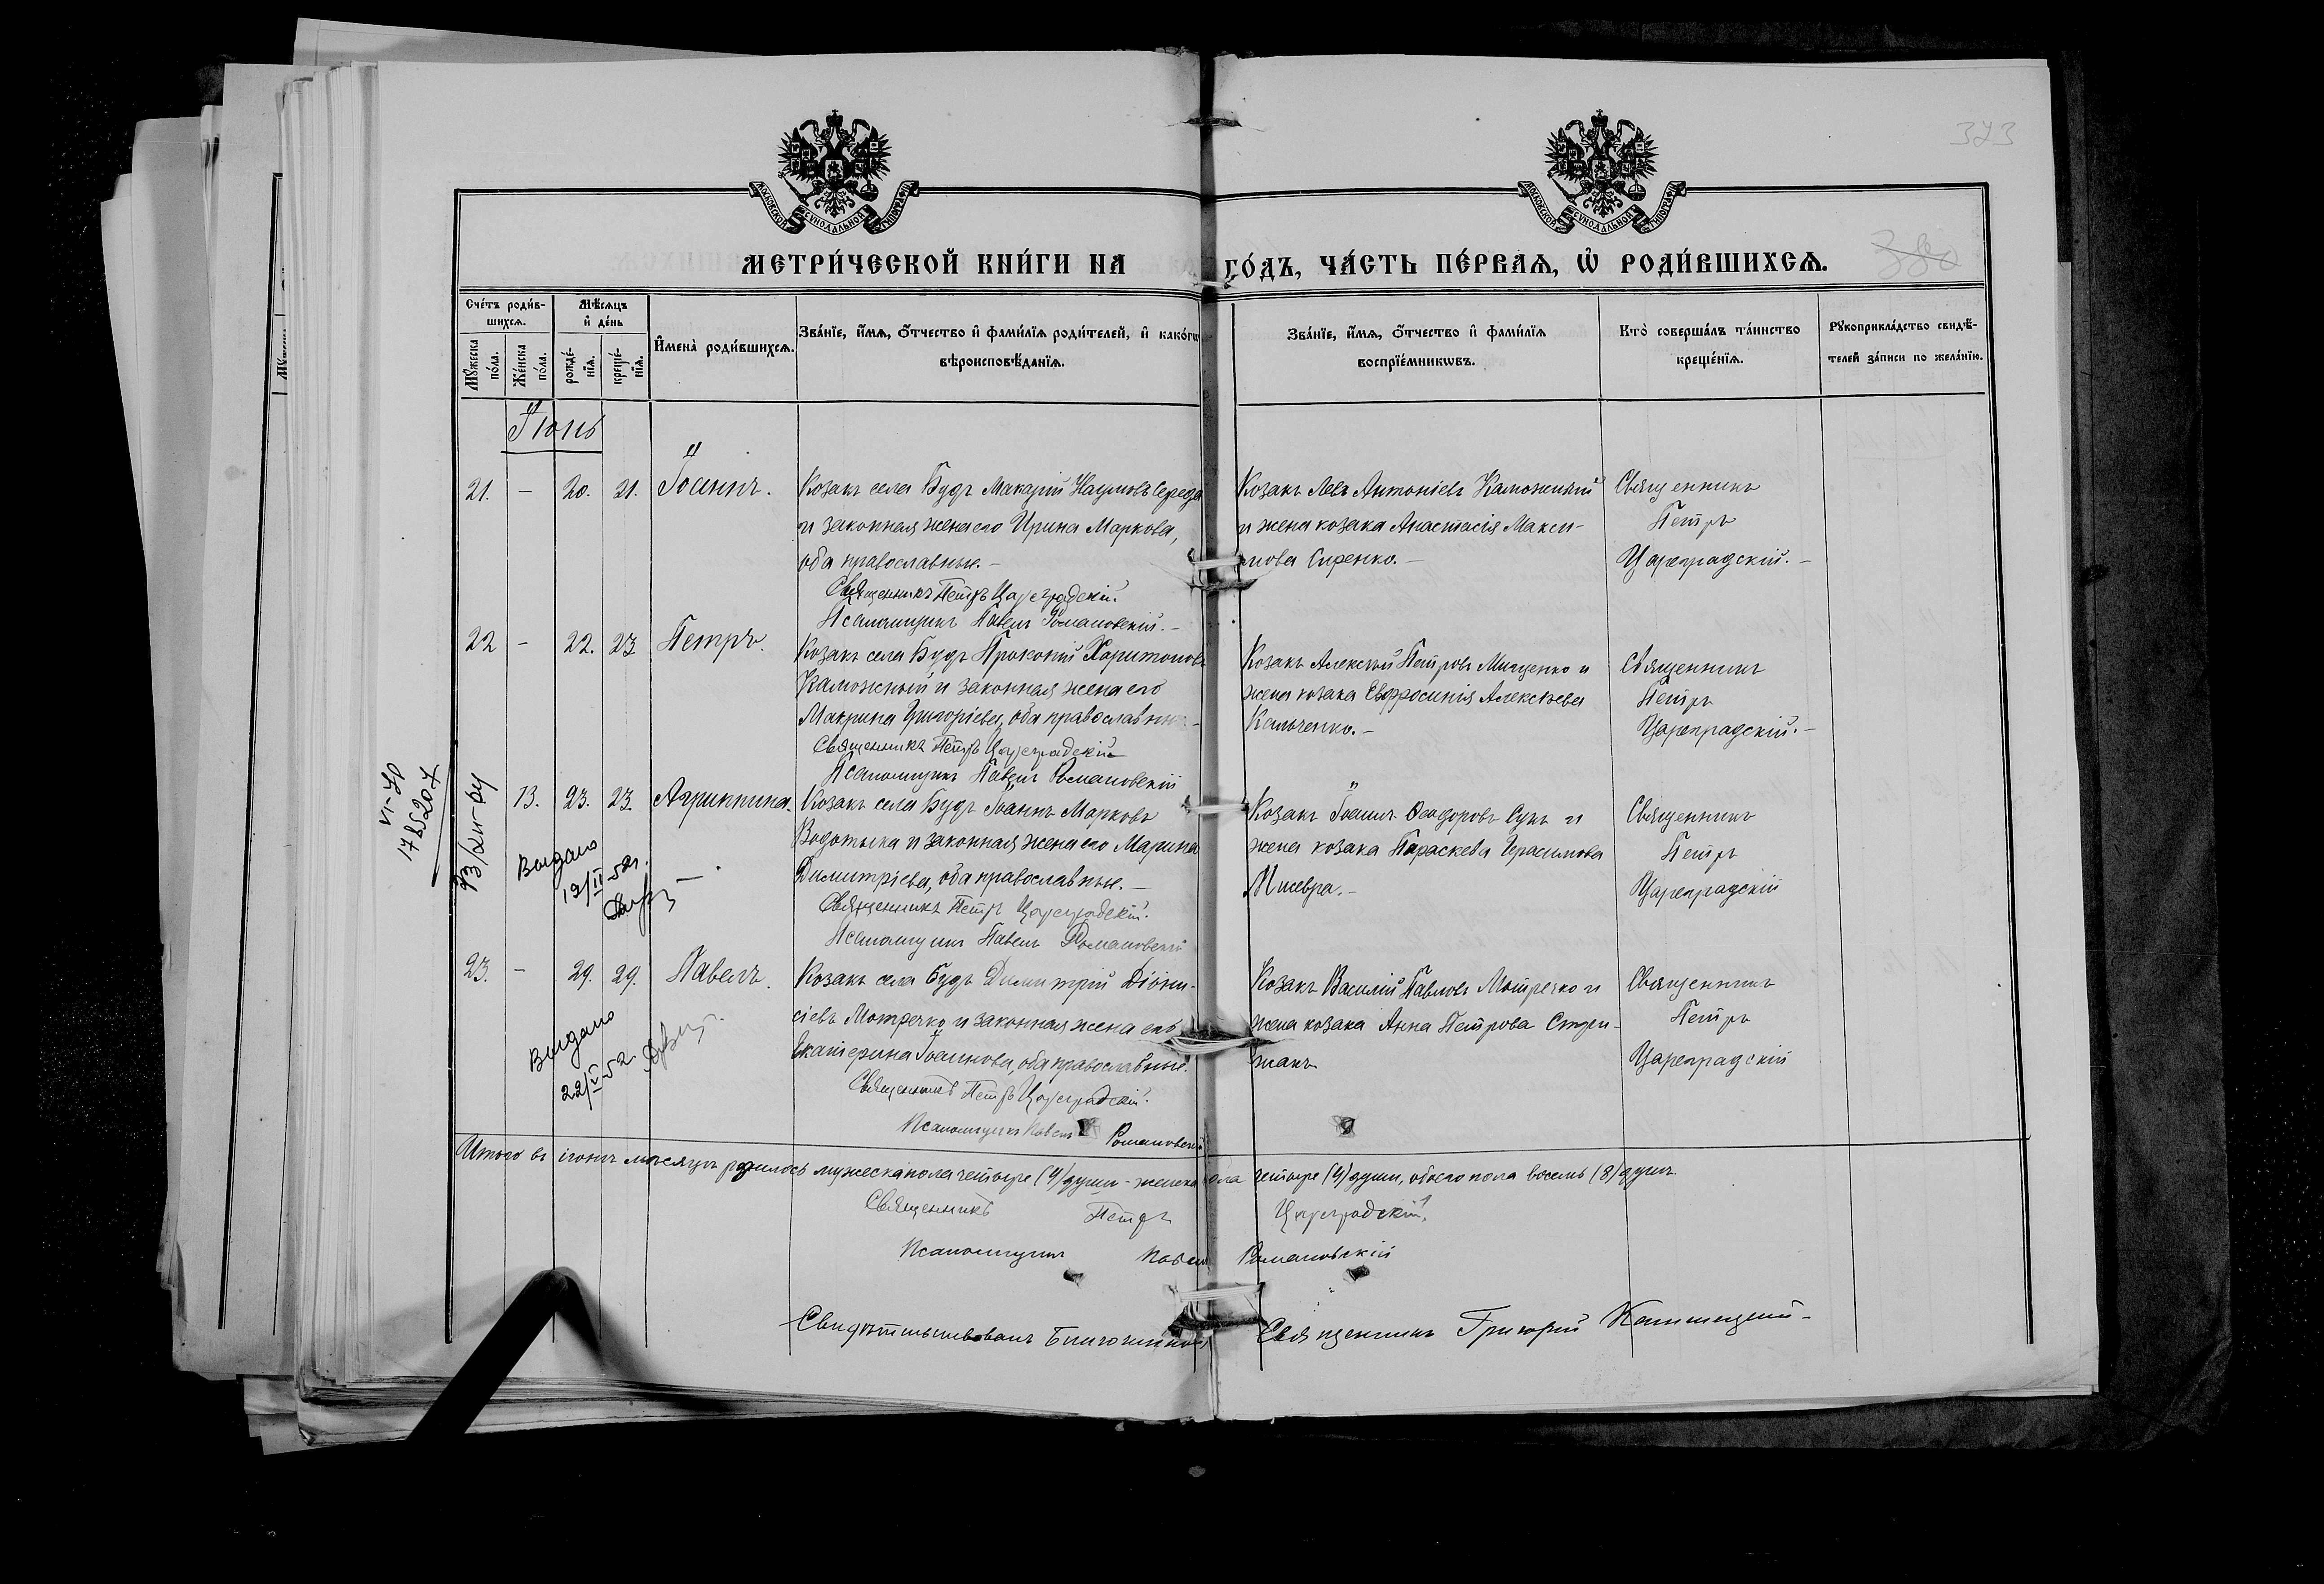 323
380
МОСКОВСКОЙ СѴНОДАЛЬНОЙ ТИПОГРАФІИ
МОСКОВСКОЙ СѴНОДАЛЬНОЙ ТИПОГРАФІИ
МЕТРИ́ЧЕСКОЙ КНИ́ГИ НА ГО́ДЪ, ЧА́СТЬ ПЕ́РВАѦ, Ѡ҆ РОДИ́ВШИХСѦ.
Сче́тъ роди́в-
шихсѧ.
Мꙋ́жеска
по́ла.
Же́нска
по́ла.
Мѣ́сѧцъ
и҆ де́нь
рожде́-
нїѧ.
креще́-
нїѧ.
И҆мена̀ роди́вшихсѧ.
Зва́нїе, и҆́мѧ, ѻ҆́тчество и҆ фами́лїѧ роди́телей, и҆ како́гѡ
вѣроисповѣ́данїѧ.
Зва́нїе, и҆́мѧ, ѻ҆́тчество и҆ фами́лїѧ
воспрїе́мникѡвъ.
Кто̀ соверша́лъ та́инство
креще́нїѧ.
Рꙋкоприкла́дство свидѣ́-
телей за́писи по жела́нїю.
Іюнь
21. – 20. 21. Іоаннъ.
Козакъ села Будъ Макарій Наумовъ Середа
и законная жена его Ирина Маркова,
оба православные. –
Священникъ Петръ Цареградскій.
Псаломщикъ Павелъ Романовскій. –
Козакъ Левъ Антоніевъ Каможный
и жена козака Анастасія Макси-
мова Сиренко. –
Священникъ
Петръ
Цареградскій. –
22 – 22. 23 Петръ.
Козакъ села Будъ Прокопій Харитоновъ
Каможный и законная жена его
Макрина Григоріева, оба православные –
Священникъ Петръ Цареградскій
Псаломщикъ Павелъ Романовскій
Козакъ Алексѣй Петровъ Мищенко и
жена козака Евфросинія Алексѣева
Кальченко. –
Священникъ
Петръ
Цареградскій. –
VI-УР
1785207
13. 23. 23 Агриппина.
Козакъ села Будъ Іоаннъ Марковъ
Водотыка и законная жена его Марина
Димитріева, оба православные. –
Священникъ Петръ Цареградскій.
Псаломщикъ Павелъ Романовскій
Козакъ Іоаннъ Ѳеодоровъ Сукъ и
жена козака Параскева Герасимова
Мищевра. –
Священникъ
Петръ
Цареградскій
Выдано
12/II-52г.
23. – 29. 29. Павелъ.
Козакъ села Будъ Димитрій Діони-
сіевъ Мотречко и законная жена его
Екатерина Іоаннова, оба православные.
Священникъ Петръ Цареградскій.
Псаломщикъ Павелъ Романовскій
Козакъ Василій Павловъ Мотречко и
жена козака Анна Петрова Стри-
жакъ
Священникъ
Петръ
Цареградскій
Выдано
22/V-52.
Итого въ іюнѣ мѣсяцѣ родилось мужеска пола четыре (4) души – женска пола четыре (4) души, обоего пола восемь (8) душъ.
Священникъ Петръ Цареградскій.
Псаломщикъ Павелъ Романовскій
Свидѣтельствовалъ Благочинный Священникъ Григорій